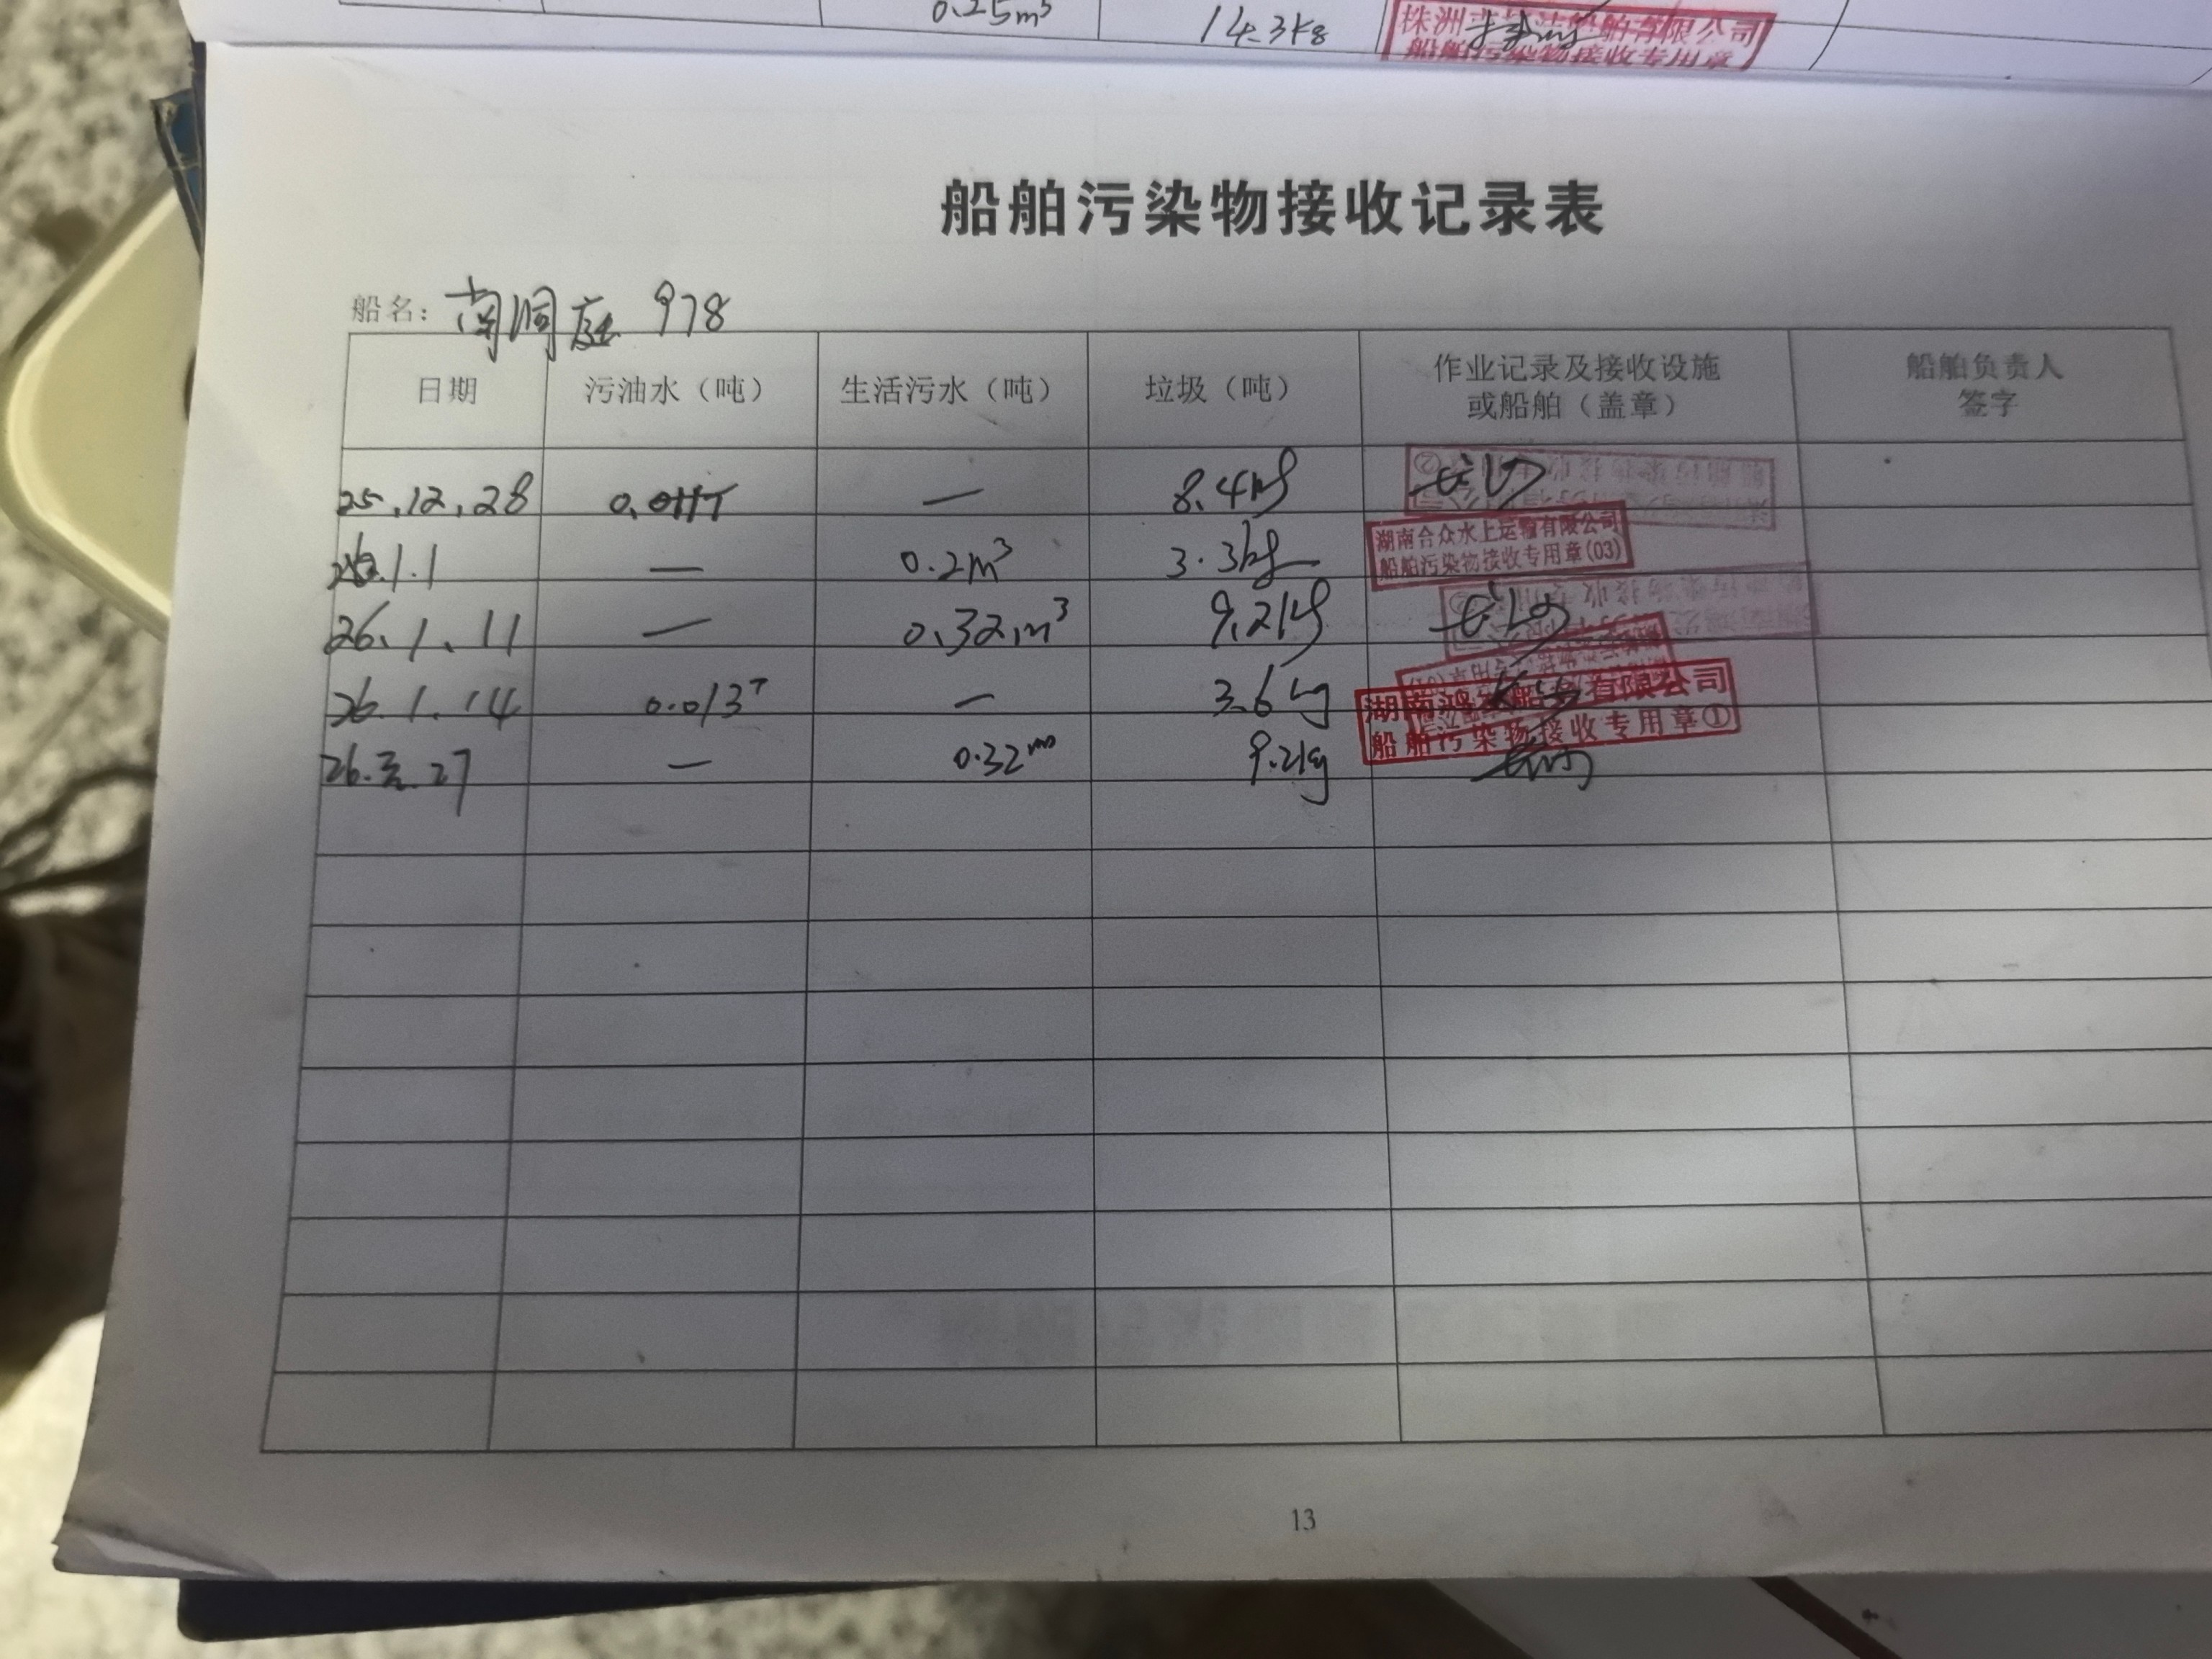 0.25m³ 14.3kg 株洲 船舶有限公司
船舶污染物接收专用章
船舶污染物接收记录表
船名：南洞庭 978
日期 污油水（吨） 生活污水（吨） 垃圾（吨） 作业记录及接收设施或船舶（盖章） 船舶负责人签字
25.12.28 — 8.4kg
1.1 — 0.2m³ 3.3kg 湖南合众水上运输有限公司
船舶污染物接收专用章(03)
26.1.11 — 0.32m³ 9.2kg
26.1.14 0.013T — 3.6kg 湖南鸿 船 有限公司
船舶污染物接收专用章①
27 — 0.32m³ 9.2kg
13